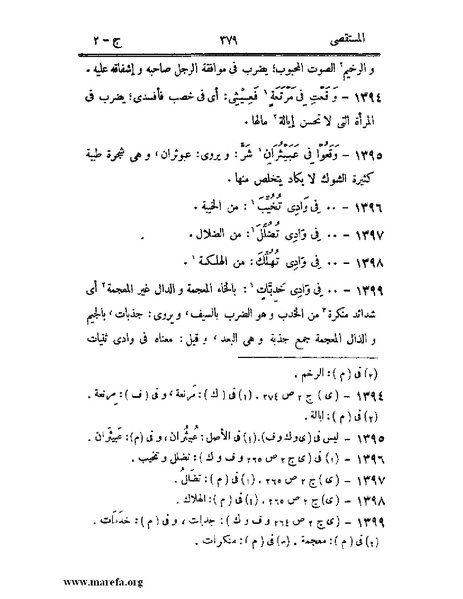 المستقصى ٣٧٩ ج - ٢
و الرخيم٢ الصوت المحبوب؛ يضرب فى موافقة الرجل صاحبه و إشفاقه عليه .
١٣٩٤ - وَقَعْتِ فِى مَرْتَعَةٍ١ فَعِيْثِى: أى فى خصب فأفسدى؛ يضرب فى
المرأة التى لا تحسن إيالة٢ مالها .
١٣٩٥ - وَقَعُوْا فِى عَبَيْثُرَانِ١ شَرٍّ: و يروى: عبوثران، و هى شجرة طيبة
كثيرة الشوك لا يكاد يتخلص منها .
١٣٩٦ - ٠٠ فِى وَادِى تُخُيِّبَ١: من الخيبة .
١٣٩٧ - ٠٠ فِى وَادِى تُضُلِّلَ١: من الضلال .
١٣٩٨ - ٠٠ فِى وَادِى تُهُلِّكَ: من الهلكة١ .
١٣٩٩ - ٠٠ فِى وَادِى خَدِبَاتٍ١: بالخاء المعجمة و الدال غير المعجمة٢ أى
شدائد منكرة٣ من الخدب و هو الضرب بالسيف، و يروى: جذبات، بالجيم
و الذال المعجمة جمع جذبة و هى البعد، و قيل: معناه فى وادى ثنيات
(٢) فى (م): الرخم .
١٣٩٤ - (ى) ج ٢ ص ٢٧٤ . (١) فى (ك): مرنعة، و فى (ف): مرنعة .
(٢) فى (م): ابالة .
١٣٩٥ - ليس فى (ى وك وف). (١) فى الأصل: عُبيثُران، و فى (م): عَبيثَران .
١٣٩٦ - (١) فى (ى ج ٢ ص ٢٦٥ و ف و ك): تضلل و تخيب .
١٣٩٧ - (ى) ج ٢ ص ٢٦٥ . (١) فى (م): تضالُ .
١٣٩٨ - (ى) ج ٢ ص ٢٦٥ . (١) فى (م): الهلاك .
١٣٩٩ - (١) فى (ى ج ٢ ص ٢٦٤ و ف و ك): جدبات، و فى (م): خدبات .
(٢) فى (م): معجمة . (٣) فى (م): منكرات .
www.marefa.org